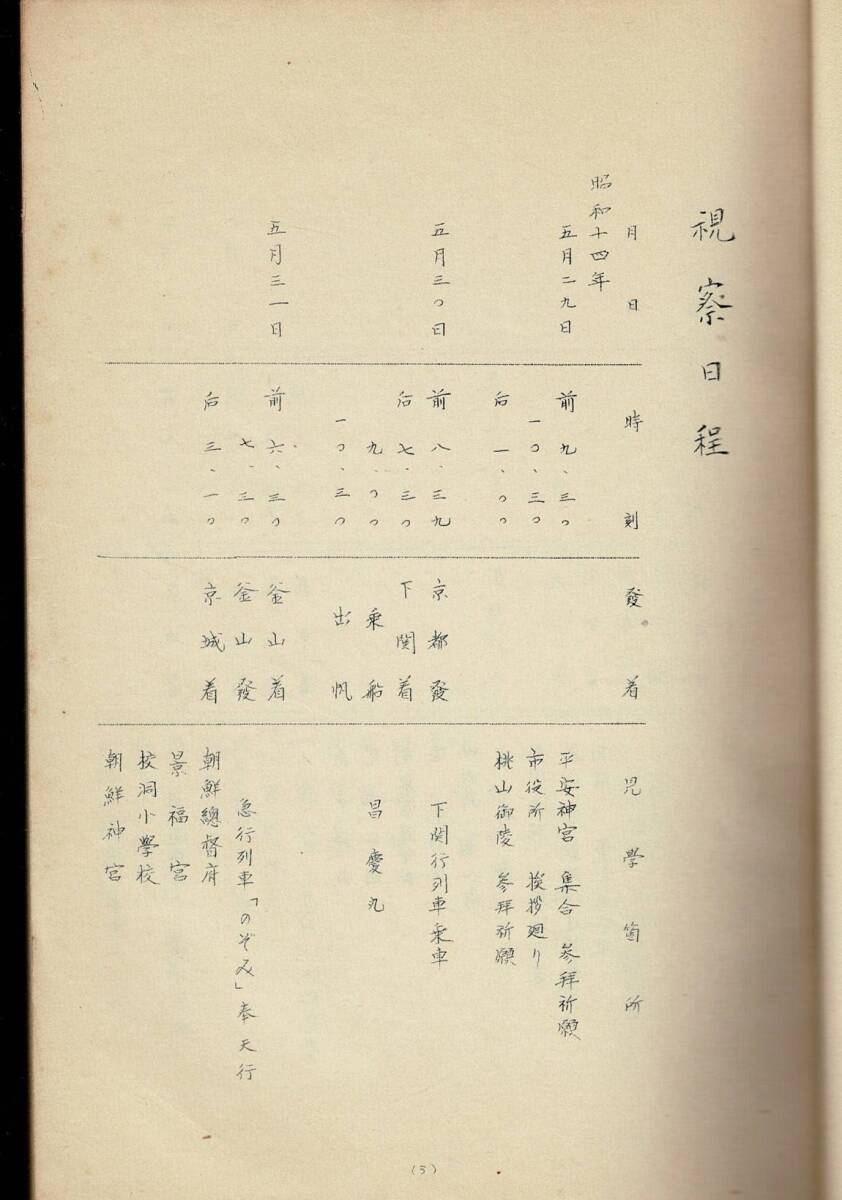 視察日程
月日 時刻 發着 見學箇所
昭和十四年
五月二九日 前 九.三〇 平安神宮 集合 参拜祈願
一〇.三〇 市役所 挨拶廻り
后 一.〇〇 桃山御陵 参拜祈願
五月三〇日 前 八.三九 京都發 下関行列車乗車
后 七.三〇 下関着
九.〇〇 乗船 昌慶丸
一〇.三〇 出帆
五月三一日 前 六.三〇 釜山着
七.三〇 釜山發 急行列車「のぞみ」奉天行
后 三.一〇 京城着 朝鮮總督府
景福宮
校洞小學校
朝鮮神宮
(5)